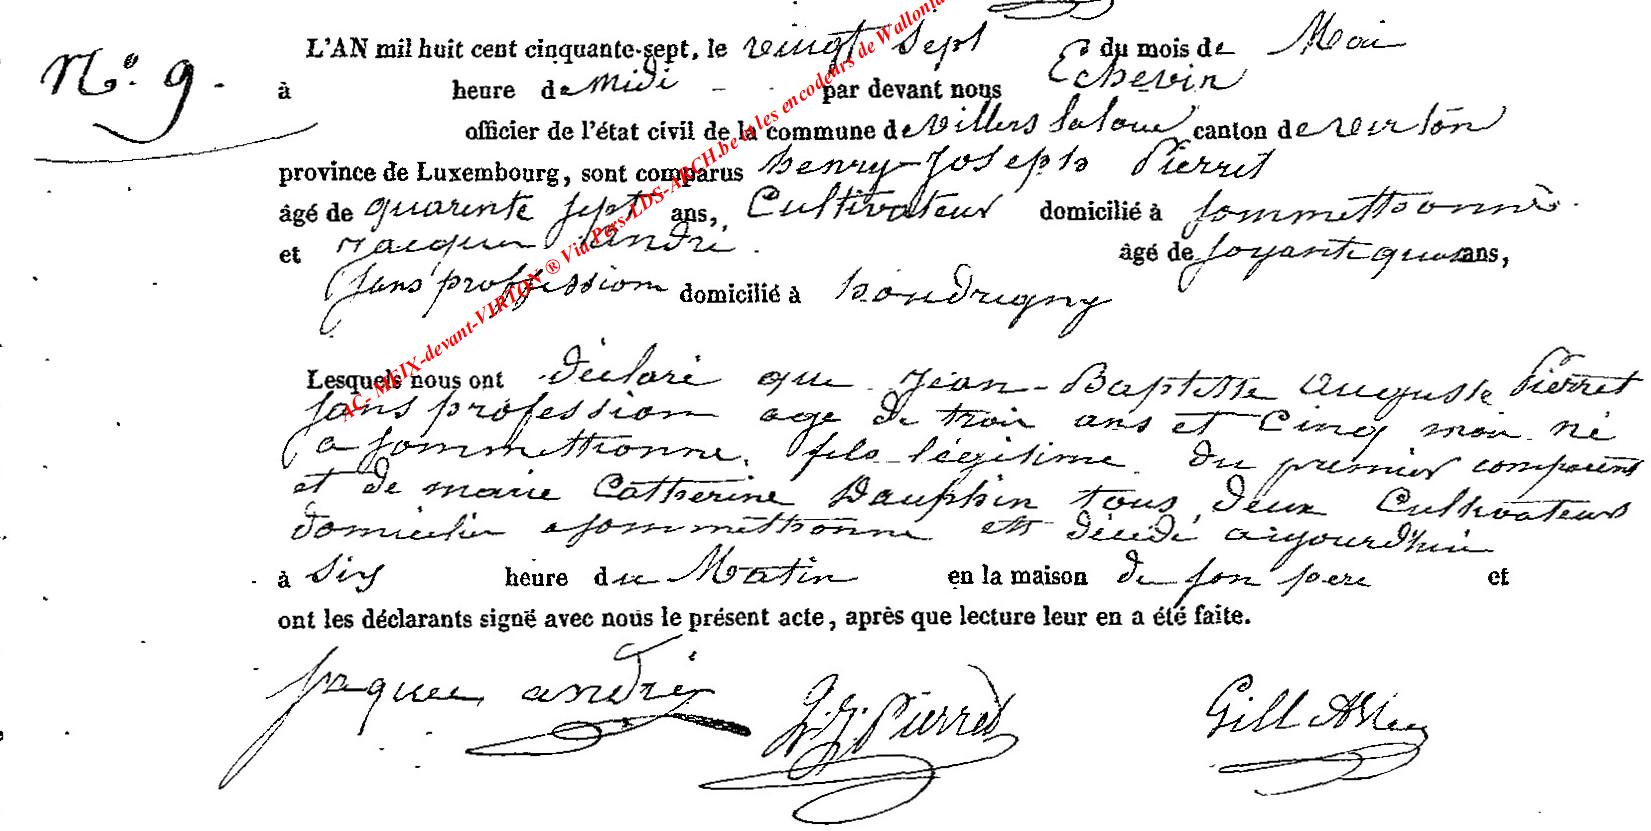 L'AN mil huit cent cinquante-sept, le vingt sept du mois de Mai
N.o 9.
à heure de midi par devant nous Echevin
officier de l'état civil de la commune de villers laloue canton de virton
province de Luxembourg, sont comparus henry-Joseph Pierret
âgé de quarente sept ans, Cultivateur domicilié à Sommethonne.
et Jacques andré. âgé de soyante quatre ans,
sans proffession domicilié à houdrigny
Lesquels nous ont déclaré que Jean-Baptiste auguste Pierret
sans profession age de troir ans et Cinq moii né
a sommethonne. fils légitime du premier comparent
et de marie Catherine Dauphin tous deux Cultivateurs
domicilier a sommethonne est décédé aujourd'huie
à Six heure du Matin en la maison de son pere et
ont les déclarants signé avec nous le présent acte, après que lecture leur en a été faite.
Jaques andrie H.J. Pierret Gill
AC- MEIX-devant-VIRTON ® Via Pers-LDS-ARCH.be et les encodeurs de Wallonie